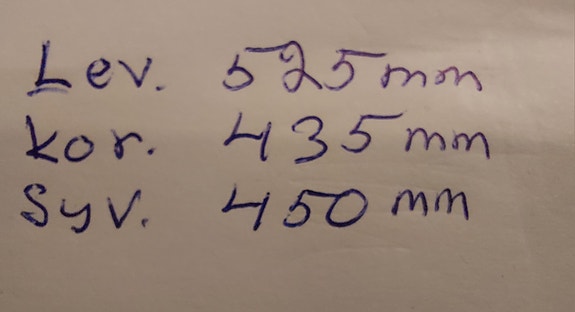 Lev. 525 mm
kor. 435 mm
Syv. 450 mm